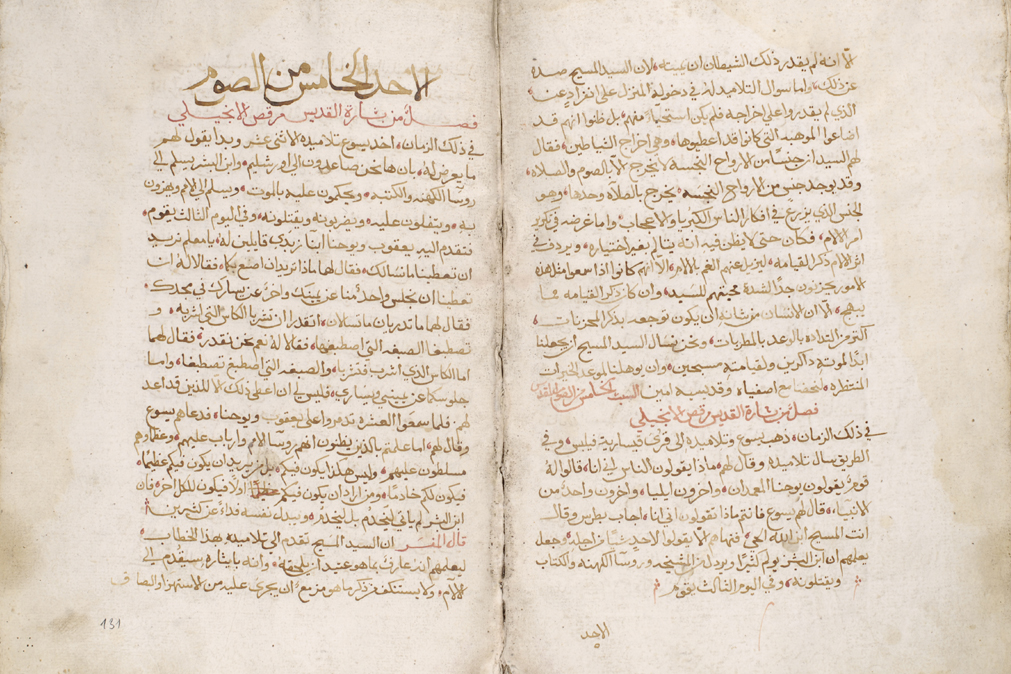 الا انه لم يقدر ذلك الشيطان ان يميته، لان السيد المسيح صده
عن ذلك، واما سوال التلاميد له في دخوله المنزل على انفراد عن
الذي لم يقدروا على اخراجه فلم يكن استحيا منهم، بل ظنوا انهم قد
اضاعوا الموهبه التي كانوا قد اعطيوها، وهي اخراج الشياطين، فقال
لهم السيد ان جنسًا من الارواح النجسة لا تخرج الا بالصوم والصلاه،
وقد يوجد جنس من الارواح النجسه، يخرج بالصلاه وحدها، وهو
الجنس الذي يزرع في افكار الناس الكبريا والاعجاب، واما غرضه في تكرر
امر الالام، فكان حتى لا يظن فيه انه تالم بغير اختياره، ويردف في
اثر الالام ذكر القيامه، ليزيل عنهم الغم بالالام، الا انهم كانوا اذا سمعوا مثل هذه
الامور يحزنون جدًا لشدة محبتهم للسيد، وان كان ذكر القيامه مما
يبهج، الا ان الانسان من شانه ان يكون توجعه بذكر المحزنات
اكثر من التذاده بالوعد بالمطربات، ونحن نسال السيد المسيح ان يجعلنا
ابدًا لموته ذاكرين ولقيامته مسبحين، وان يوهلنا لموعد الخيرات
المنتظره، لنحضا مع اصفياه وقديسيه امين السبت الخامس من الصوم المقدس
فصل من بشارة القديس مرقص الانجيلي
في ذلك الزمان، ذهب يسوع وتلاميده الى قرى قيسارية فيلبس، وفي
الطريق سال تلاميده وقال لهم، ماذا يقولون الناس اني انا، قالوا له
قوم يقولون يوحنا المعمدان، واخرون ايليا، واخرون واحد من
الانبياء، قال لهم يسوع فانتم ماذا تقولون اني انا، اجاب بطرس وقال
انت المسيح ابن الله الحي، فنهاهم الا يقولوا لاحدٍ شيا من اجله، وجعل
يعلمهم ان ابن البشر يولم كثيرًا ويردل من المشيخه وروسا الكهنه والكتاب
ويقتلونه، وفي اليوم الثالث يقوم
الاحد
الاحد الخامس من الصوم
فصل من بشارة القديس مرقص الانجيلي
في ذلك الزمان، اخد يسوع تلاميذه الاثني عشر وبدا يقول لهم
ما يعرض له، بان ها نحن صاعدون الى اورشليم، وابن البشر يسلم الى
روسا الكهنه والكتبه، ويحكمون عليه بالموت، ويسلم الى الامم ويهزون
به، ويتفلون عليه، ويضربونه ويقتلونه، وفي اليوم الثالث يقوم،
فتقدم اليه يعقوب ويوحنا ابنا زبدي قايلين له، يا معلم نريد
ان تعطينا ما نسالك، فقال لهما ماذا تريدان اصنع بكما، فقالا له
تعطينا ان نجلس واحد منا عن يمينك واخر عن يسارك في مجدك،
فقال لهما ما تدريان ما تسالان، اتقدران ان تشربا الكاس التي اشربه، و
تصطبغا الصبغه التي اصطبغها، فقالا له نعم نحن نقدر، فقال لهما
اما الكاس الذي اشرب فتشربا، والصبغه التي اصطبغ تصطبغا، واما
جلوسكما عن يميني ويساري، فليس لي ان اعطي ذلك الا للذين قد اعد
لهم، فلما سمعوا العشره تدمروا على يعقوب ويوحنا، فدعاهم يسوع
وقال لهم، اما علمتم بالذين يظنون انهم روسا الامم وارباب عليهم، وعظاوهم
مسلطون عليهم، وليس هكذا يكون فيكم، بل من يريد ان يكون فيكم عظيمًا،
فيكون لكم خادمًا، ومن اراد ان يكون فيكم اولًا فيكون للكل اخر، فان
ابن البشر لم ياتي ليخدم بل ليخدم، ويبدل نفسه فداءً عن كثيرين
قال المفسر ان السيد المسيح تقدم الى تلاميده بهذا الخطاب،
ليعلمهم انه عارف بما هو عتيد ان يلحقه، وانه بايثاره يستقدم الى
الالام، ولا يستنكف من ذكر ما هو مزمع ان يجري عليه من الاستهزا والبصاق
131